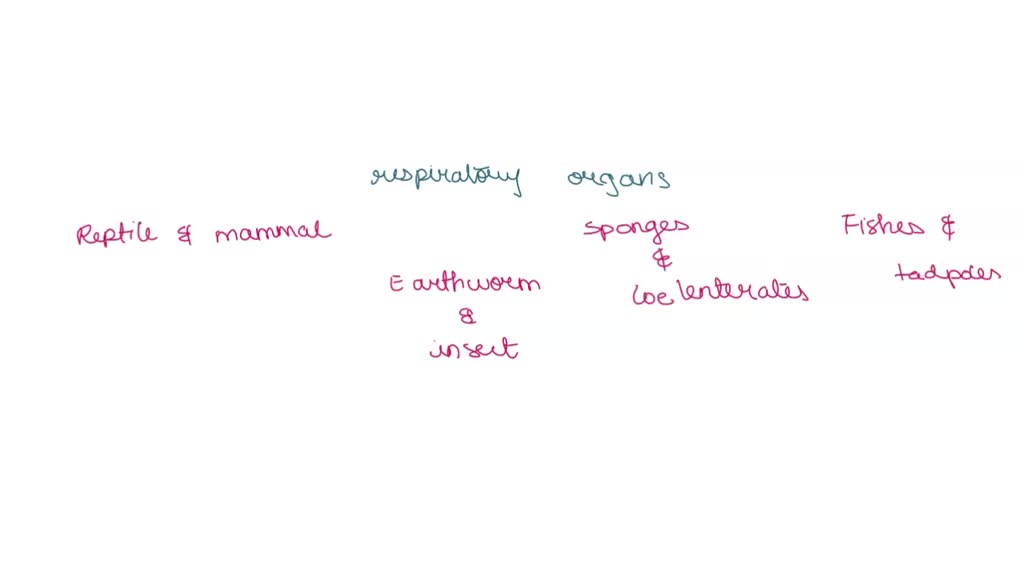 respiratory organs
Reptile & mammal
Earthworm
&
insect
Sponges
&
Coelenterates
Fishes &
tadpoles